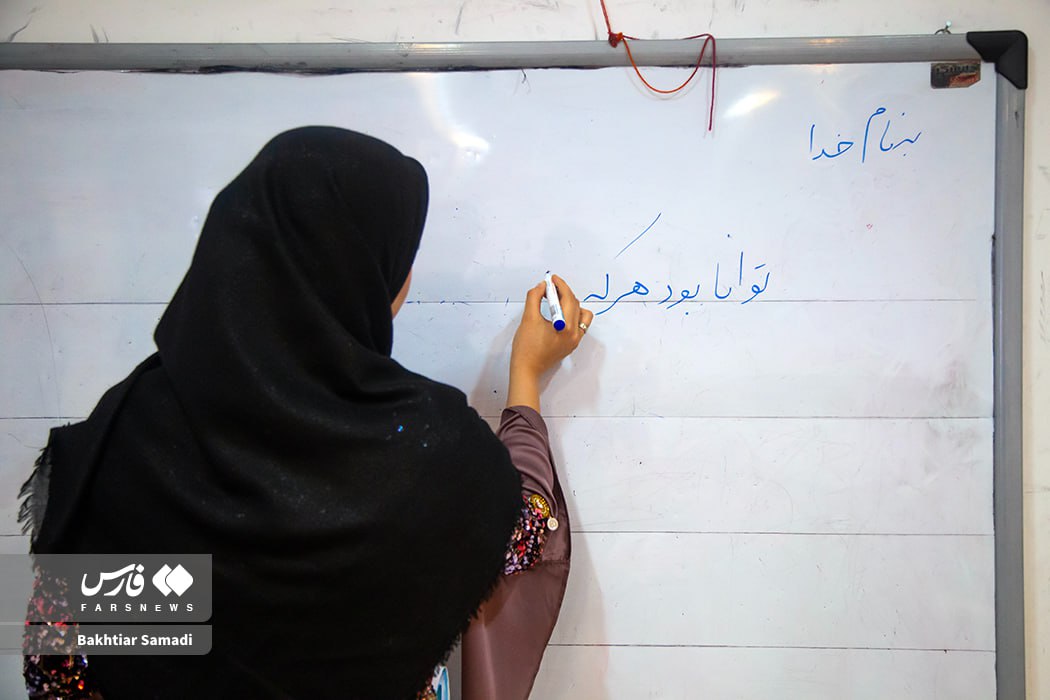 بنام خدا
توانا بود هر که
فارس
FARSNEWS
Bakhtiar Samadi